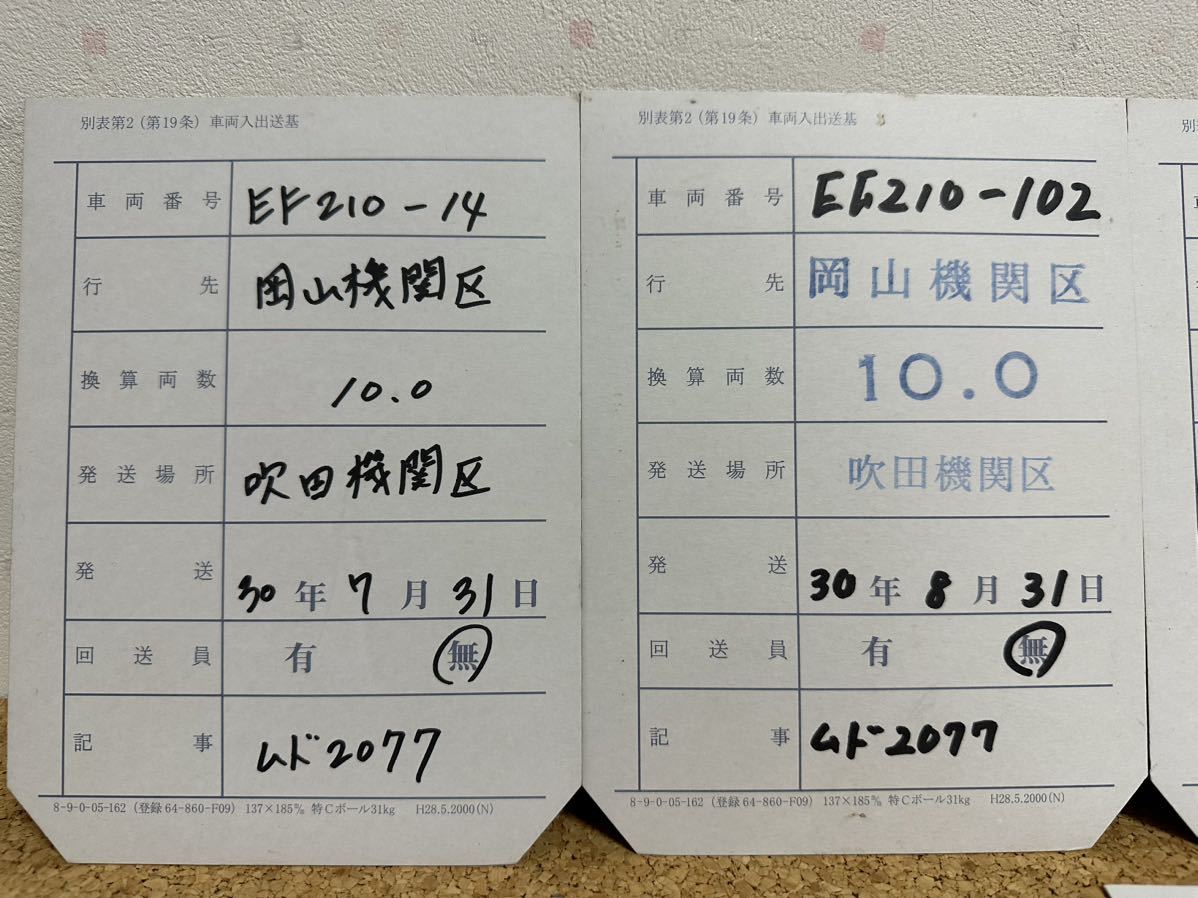 別表第2 (第19条) 車両入出送基
車両番号 EF210-14
行先 岡山機関区
換算両数 10.0
発送場所 吹田機関区
発送 30年7月31日
回送員 有 無
記事 ムド2077
8-9-0-05-162 (登録64-860-F09) 137×185㎜ 特Cボール31kg H28.5.2000(N)
別表第2 (第19条) 車両入出送基
車両番号 EF210-102
行先 岡山機関区
換算両数 10.0
発送場所 吹田機関区
発送 30年8月31日
回送員 有 無
記事 ムド2077
8-9-0-05-162 (登録64-860-F09) 137×185㎜ 特Cボール31kg H28.5.2000(N)